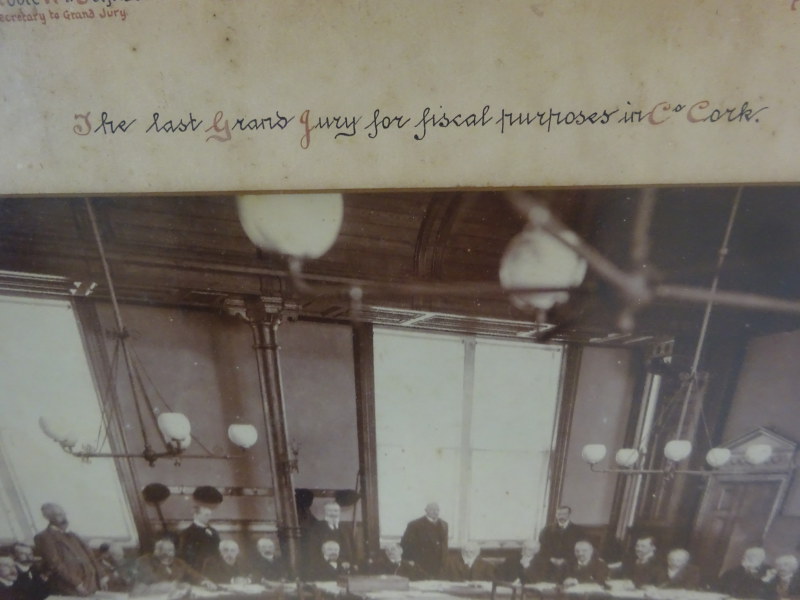 Secretary to Grand Jury.
The last Grand Jury for fiscal purposes in Co Cork.